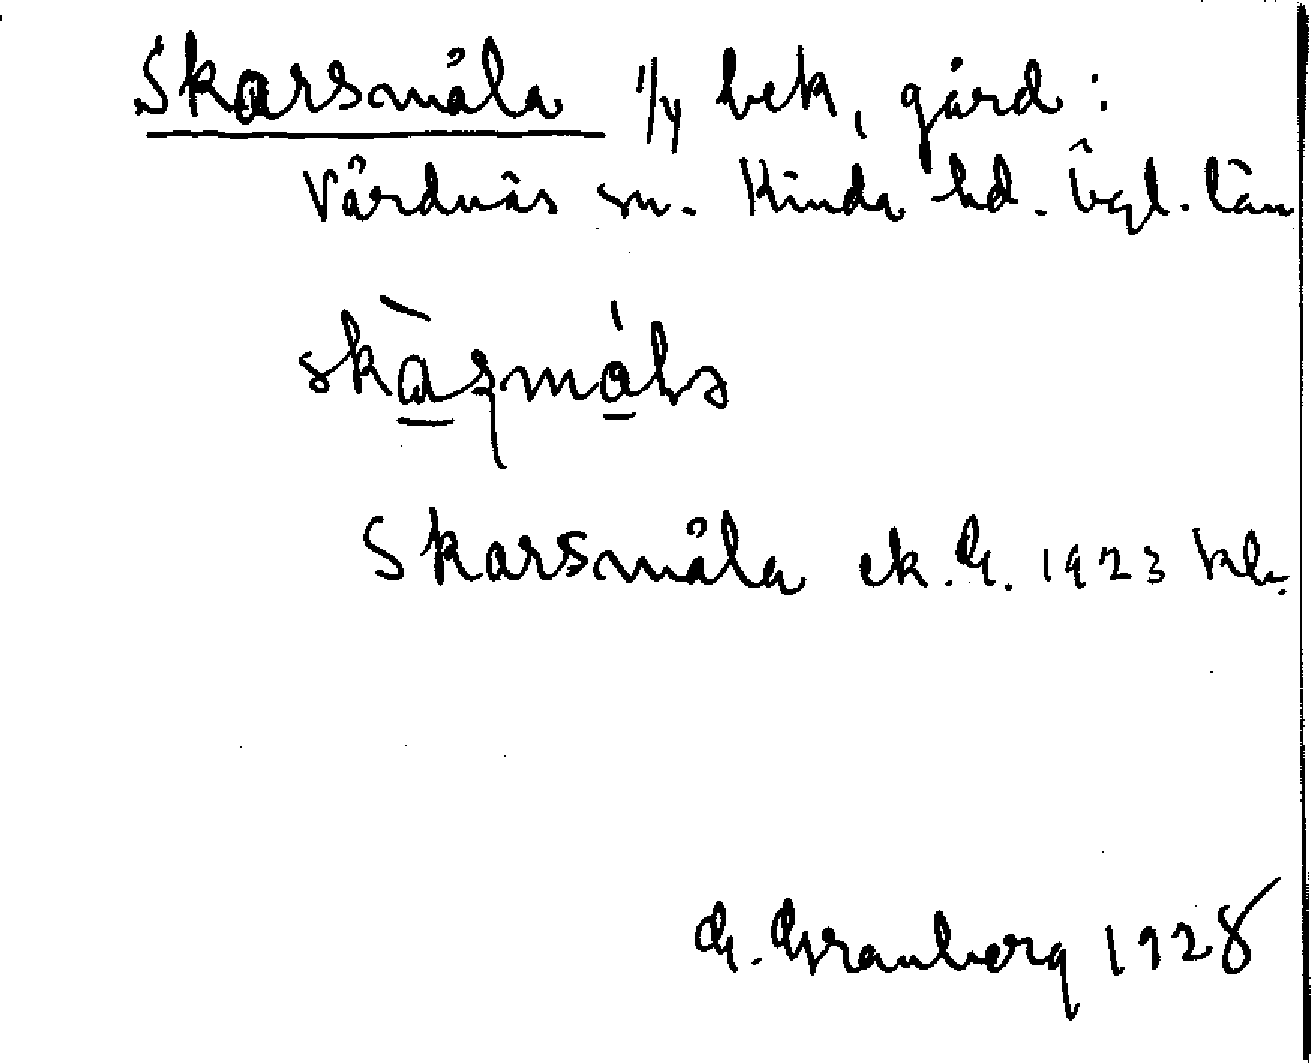 Skarsmåla 1/4 bek, gård :
Vårdnäs sn. Kinda hd. Ögl. län
skàʂmálɜ
Skarsmåla ek. G. 1923 kb.
G. Granberg 1928